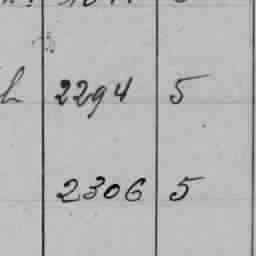 2294 5
2306 5